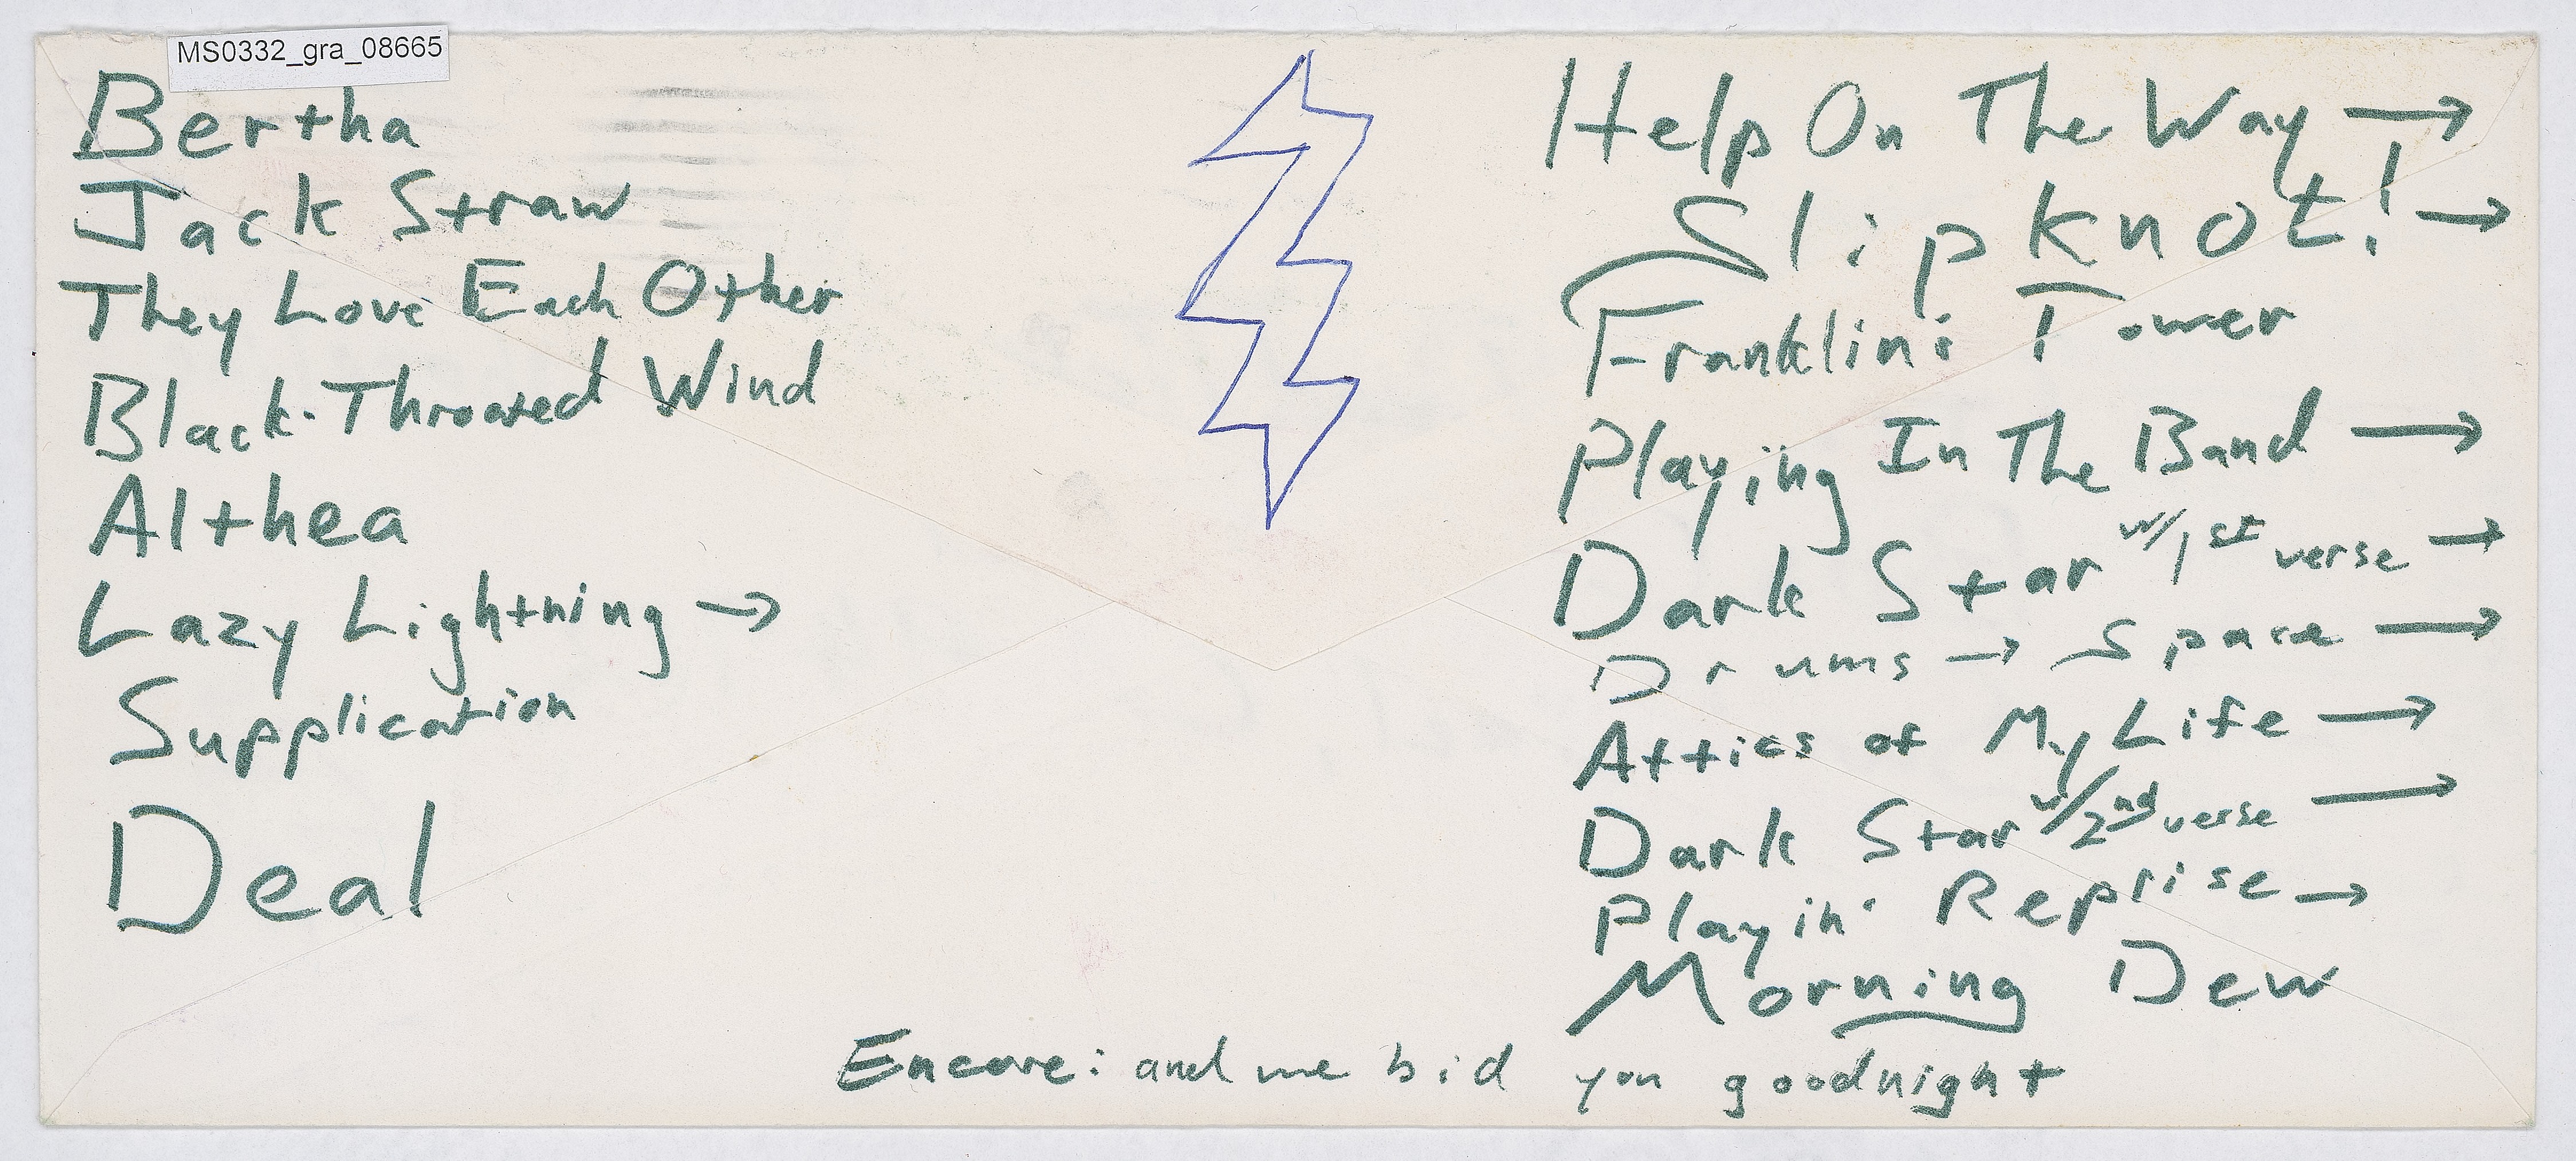 MS0332_gra_08665
Bertha
Jack Straw
They Love Each Other
Black-Throated Wind
Althea
Lazy Lightning →
Supplication
Deal
Help On The Way →
Slipknot! →
Franklins Tower
Playing In The Band →
Dark Star w/1st verse →
Drums → Space →
Attics of My Life →
Dark Star w/2nd verse →
Playin' Reprise →
Morning Dew
Encore: and we bid you goodnight